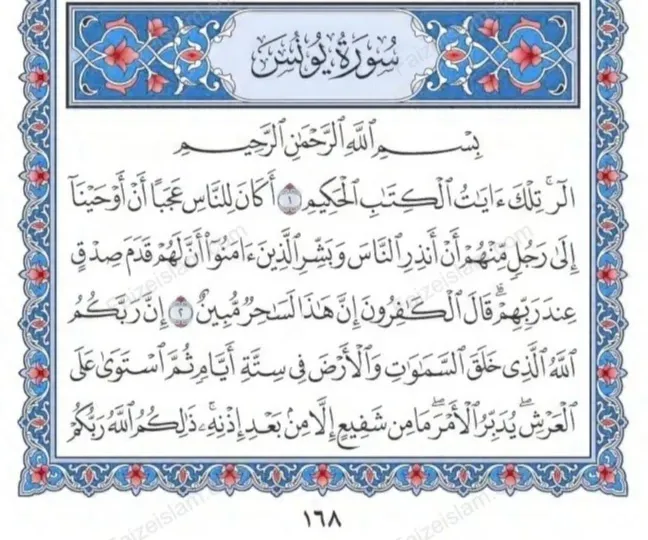 سُورَةُ يُونُسَ
بِسْمِ ٱللَّهِ ٱلرَّحْمَٰنِ ٱلرَّحِيمِ
الٓرۚ تِلْكَ ءَايَٰتُ ٱلْكِتَٰبِ ٱلْحَكِيمِ ١ أَكَانَ لِلنَّاسِ عَجَبًا أَنْ أَوْحَيْنَآ
إِلَىٰ رَجُلٍ مِّنْهُمْ أَنْ أَنذِرِ ٱلنَّاسَ وَبَشِّرِ ٱلَّذِينَ ءَامَنُوٓا۟ أَنَّ لَهُمْ قَدَمَ صِدْقٍ
عِندَ رَبِّهِمْۗ قَالَ ٱلْكَٰفِرُونَ إِنَّ هَٰذَا لَسَٰحِرٌ مُّبِينٌ ٢ إِنَّ رَبَّكُمُ
ٱللَّهُ ٱلَّذِى خَلَقَ ٱلسَّمَٰوَٰتِ وَٱلْأَرْضَ فِى سِتَّةِ أَيَّامٍ ثُمَّ ٱسْتَوَىٰ عَلَى
ٱلْعَرْشِۖ يُدَبِّرُ ٱلْأَمْرَۖ مَا مِن شَفِيعٍ إِلَّا مِنۢ بَعْدِ إِذْنِهِۦۚ ذَٰلِكُمُ ٱللَّهُ رَبُّكُمْ
١٦٨
Faizeislam.com